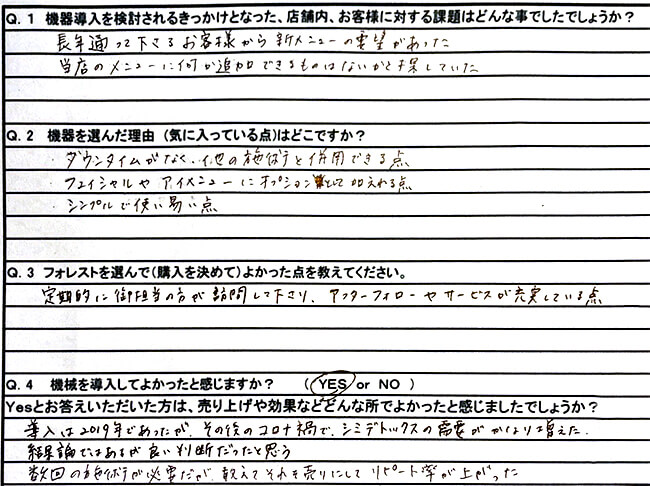 Q. 1 機器導入を検討されるきっかけとなった、店舗内、お客様に対する課題はどんな事でしたでしょうか？
長年通って下さるお客様から新メニューの要望があった
当店のメニューに何か追加できるものはないかと探していた
Q. 2 機器を選んだ理由（気に入っている点）はどこですか？
・ダウンタイムがなく、他の施術と併用できる点
・フェイシャルやアイメニューにオプションとして加えれる点
・シンプルで使い易い点
Q. 3 フォレストを選んで（購入を決めて）よかった点を教えてください。
定期的に御担当の方が訪問して下さり、アフターフォローやサービスが充実している点
Q. 4 機械を導入してよかったと感じますか？ （ YES or NO ）
Yesとお答えいただいた方は、売り上げや効果などどんな所でよかったと感じましたでしょうか？
導入は2019年であったが、その後のコロナ禍で、シミデトックスの需要がかなり増えた。
結果論ではあるが良い判断だったと思う
数回の施術が必要だが、敢えてそれを売りにしてリピート率が上がった